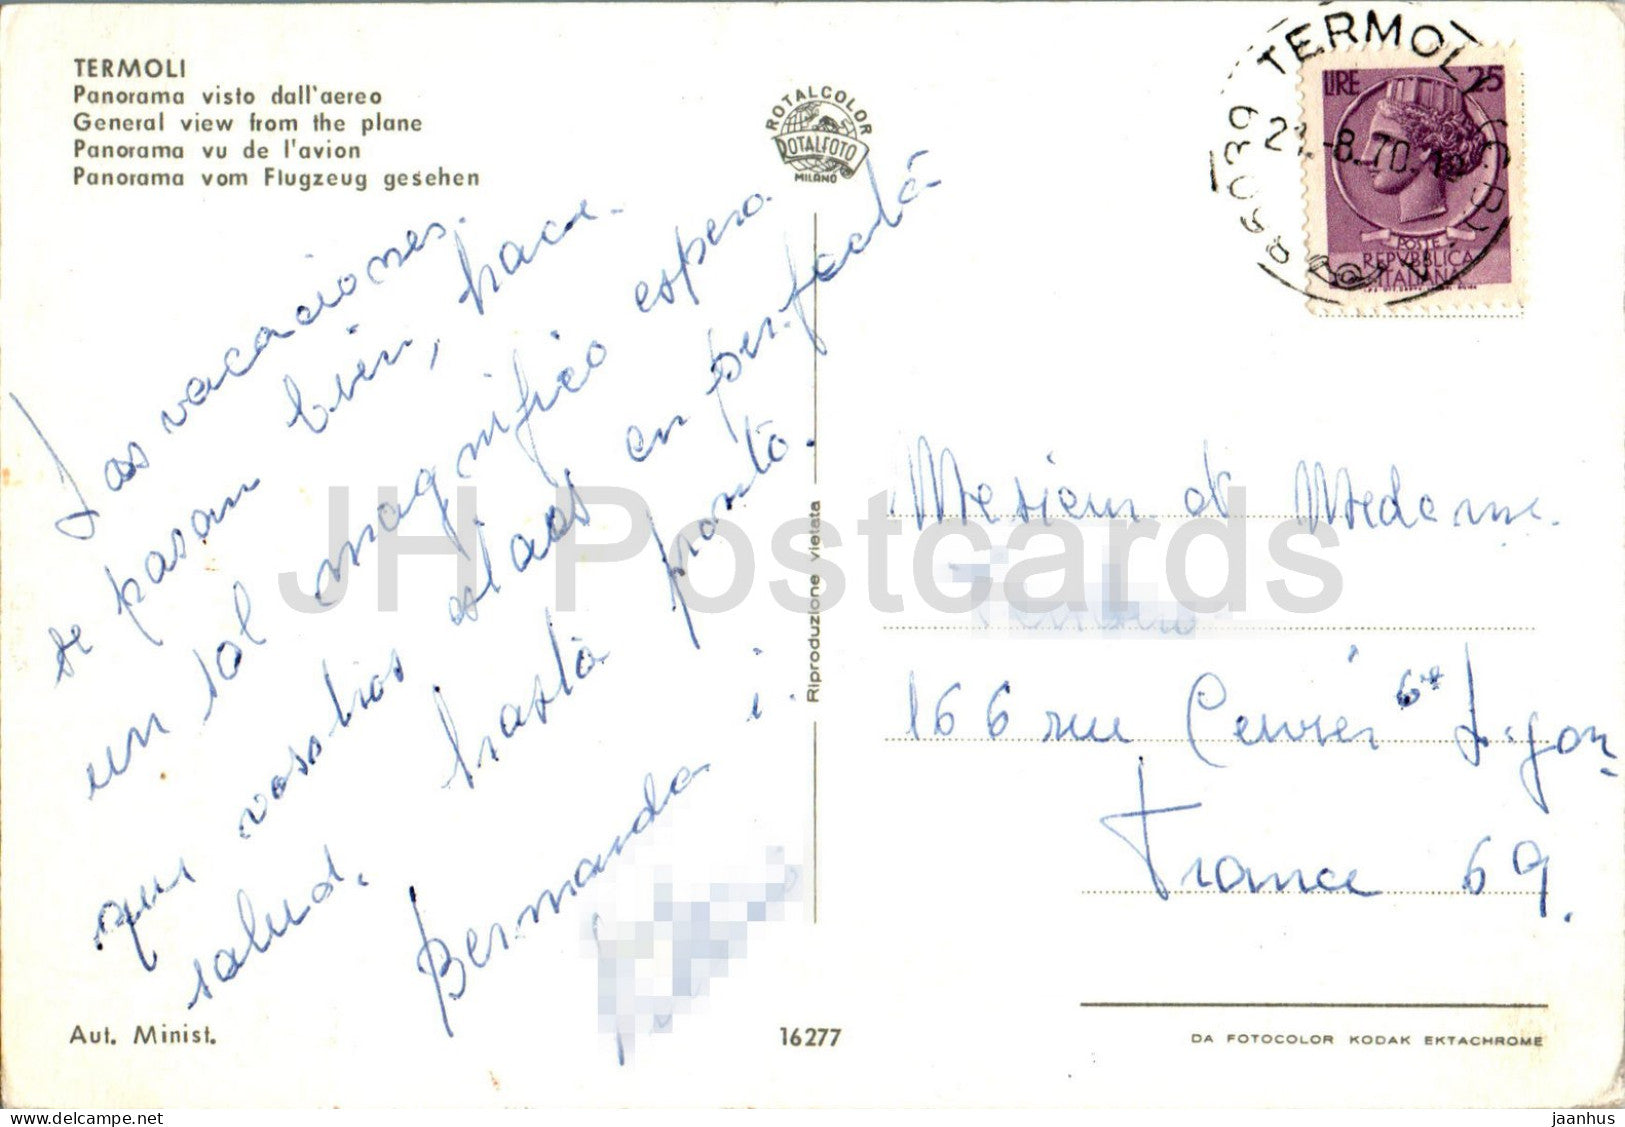 TERMOLI
Panorama visto dall'aereo
General view from the plane
Panorama vu de l'avion
Panorama vom Flugzeug gesehen
ROTALCOLOR
ROTALFOTO
MILANO
TERMOLI
86039
-8.70
LIRE 25
POSTE
REPVBBLICA
ITALIANA
Las vacaciones
se pasan bien, hace
un sol magnifico espero
que vosotros estais en perfecta
salud. hasta pronto.
Bernanda i
Mesieur et Medame
166 rue Cuvier 6e Lyon
France 69.
Riproduzione vietata
Aut. Minist.
16277
DA FOTOCOLOR KODAK EKTACHROME
JH Postcards
www.delcampe.net
jaanhus